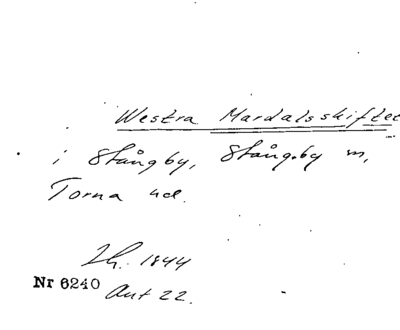 Westra Mardalsskiftet
i Stångby, Stångby m,
Torna hd.
Lh. 1844
Nr 6240
Ant 22.